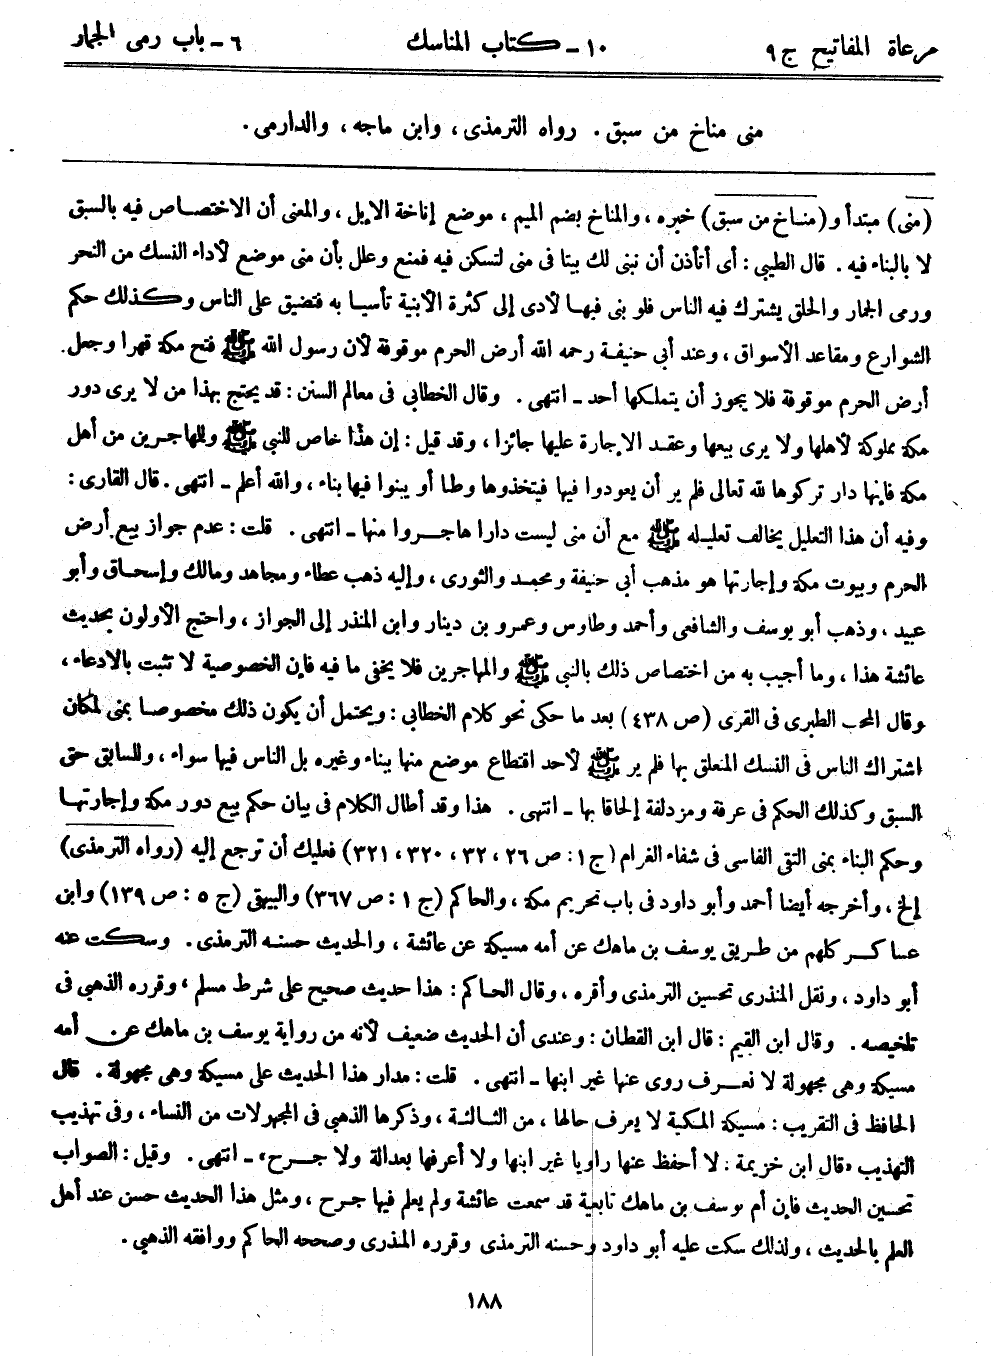 مرعاة المفاتيح ج ٩ ١٠ - كتاب المناسك ٦ - باب رمى الجمار
منى مناخ من سبق . رواه الترمذى ، وابن ماجه ، والدارمى .
(منى) مبتدأ و(مناخ من سبق) خبره ، والمناخ بضم الميم ، موضع إناخة الإبل ، والمعنى أن الاختصاص فيه بالسبق
لا بالبناء فيه . قال الطيبى : أى أتأذن أن نبنى لك بيتا فى منى لتسكن فيه فمنع وعلل بأن منى موضع لأداء النسك من النحر
ورمى الجمار والحلق يشترك فيه الناس فلو بنى فيها لأدى إلى كثرة الأبنية تأسيا به فتضيق على الناس وكذلك حكم
الشوارع ومقاعد الأسواق ، وعند أبى حنيفة رحمه الله أرض الحرم موقوفة لأن رسول الله ﷺ فتح مكة قهرا وجعل
أرض الحرم موقوفة فلا يجوز أن يتملكها أحد - انتهى . وقال الخطابى فى معالم السنن : قد يحتج بهذا من لا يرى دور
مكة مملوكة لأهلها ولا يرى بيعها وعقد الإجارة عليها جائزا ، وقد قيل : إن هذا خاص للنبى ﷺ وللمهاجرين من أهل
مكة فإنها دار تركوها لله تعالى فلم ير أن يعودوا فيها فيتخذوها وطنا أو يبنوا فيها بناء ، والله أعلم - انتهى . قال القارى :
وفيه أن هذا التعليل يخالف تعليله ﷺ مع أن منى ليست دارا هاجروا منها - انتهى . قلت : عدم جواز بيع أرض
الحرم وبيوت مكة وإجارتها هو مذهب أبى حنيفة ومحمد والثورى ، وإليه ذهب عطاء ومجاهد ومالك وإسحاق وأبو
عبيد ، وذهب أبو يوسف والشافعى وأحمد وطاوس وعمرو بن دينار وابن المنذر إلى الجواز ، واحتج الأولون بحديث
عائشة هذا ، وما أجيب به من اختصاص ذلك بالنبى ﷺ والمهاجرين فلا يخفى ما فيه فإن الخصوصية لا تثبت بالادعاء ،
وقال المحب الطبرى فى القرى (ص ٤٣٨) بعد ما حكى نحو كلام الخطابى : ويحتمل أن يكون ذلك مخصوصا بمنى لمكان
اشتراك الناس فى النسك المتعلق بها فلم ير ﷺ لأحد اقتطاع موضع منها ببناء وغيره بل الناس فيها سواء ، وللسابق حق
السبق وكذلك الحكم فى عرفة ومزدلفة إلحاقا بها - انتهى . هذا وقد أطال الكلام فى بيان حكم بيع دور مكة وإجارتها
وحكم البناء بمنى التقى الفاسى فى شفاء الغرام (ج ١ : ص ٢٦ ، ٣٢ ، ٣٢٠ ، ٣٢١) فعليك أن ترجع إليه (رواه الترمذى)
إلخ ، وأخرجه أيضا أحمد وأبو داود فى باب تحريم مكة ، والحاكم (ج ١ : ص ٣٦٧) والبيهقى (ج ٥ : ص ١٣٩) وابن
عساكر كلهم من طريق يوسف بن ماهك عن أمه مسيكة عن عائشة ، والحديث حسنه الترمذى . وسكت عنه
أبو داود ، ونقل المنذرى تحسين الترمذى وأقره ، وقال الحاكم : هذا حديث صحيح على شرط مسلم ، وقرره الذهبى فى
تلخيصه . وقال ابن القيم : قال ابن القطان : وعندى أن الحديث ضعيف لأنه من رواية يوسف بن ماهك عن أمه
مسيكة وهى مجهولة لا نعرف روى عنها غير ابنها - انتهى . قلت : مدار هذا الحديث على مسيكة وهى مجهولة . قال
الحافظ فى التقريب : مسيكة المكية لا يعرف حالها ، من الثالثة ، وذكرها الذهبى فى المجهولات من النساء ، وفى تهذيب
التهذيب «قال ابن خزيمة : لا أحفظ عنها راويا غير ابنها ولا أعرفها بعدالة ولا جرح» - انتهى . وقيل : الصواب
تحسين الحديث فإن أم يوسف بن ماهك تابعية قد سمعت عائشة ولم يعلم فيها جرح ، ومثل هذا الحديث حسن عند أهل
العلم بالحديث ، ولذلك سكت عليه أبو داود وحسنه الترمذى وقرره المنذرى وصححه الحاكم ووافقه الذهبى .
١٨٨